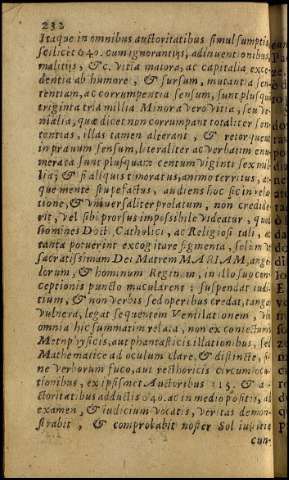 232
Itaque in omnibus auctoritatibus simul sumptis
scilicet 640. cum ignorantijs, adinuentionibus,
malitijs, &c. vitia maiora, ac capitalia exce-
dentia ab humore, & sursum, mutantia sen-
tentiam, ac corrumpentia sensum, sunt plusquã
triginta tria millia Minora vero Vitia, seu ve-
nialia, quæ licet non corrumpant totaliter sen-
tentias, illas tamen alterant, & retorquent
in prauum sensum, literaliter ac verbatim enu-
merata sunt plusquam centum viginti sex mil-
lia; & si aliquis timoratus, animo territus, at-
que mente stupefactus, audiens hoc sic in rela-
tione, & vniuersaliter prolatum, non credide-
rit, vel sibi prorsus impossibile videatur, quod
homines Docti, Catholici, ac Religiosi tali, ac
tanta potuerint excogitare figmenta, solum vt
sacratissimam Dei Matrem MARIAM, ange-
lorum, & hominum Reginam, in illo suo con-
ceptionis puncto mucularent: suspendat iudi-
tium, & non verbis sed operibus credat, tangat
vulnera, legat sequentem Ventilationem, vbi
omnia hic summatim relata, non ex coniecturis
Metaphysicis, aut phantasticis illationibus, sed
Mathematice ad oculum clare, & distincte, si-
ne verborum fuco, aut rhethoricis circumlocu-
tionibus, ex ipsismet Auctoribus 215. & a-
ctoritatibus adductis 640. ac in medio positis, ad
examen, & iudicium vocatis, veritas demon-
strabit, & comprobabit noster Sol iustitiæ
cum